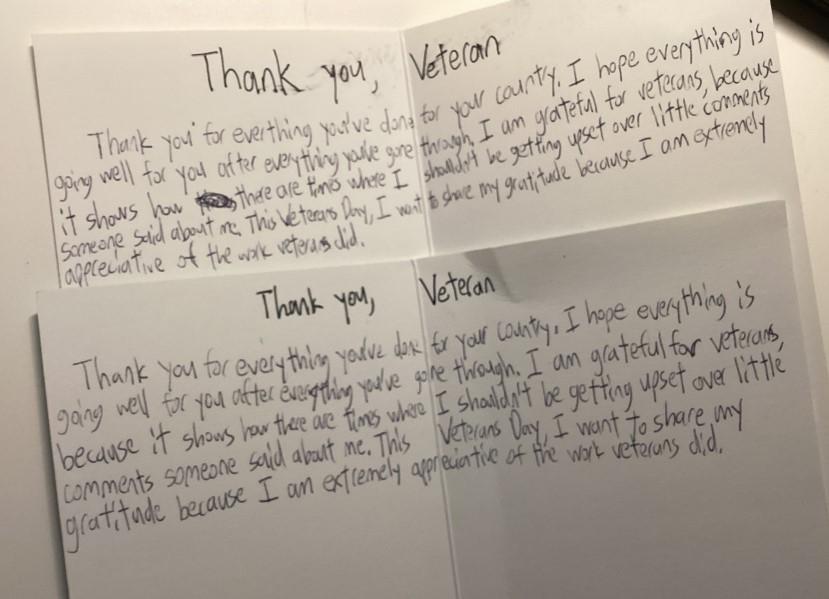 Thank you, Veteran
Thank you for everthing you've done for your country. I hope everything is
going well for you after everything you've gone through. I am grateful for veterans, because
it shows how there are times where I shouldn't be getting upset over little comments
someone said about me. This Veterans Day, I want to share my gratitude because I am extremely
appreciative of the work veterans did.
Thank you, Veteran
Thank you for everything you've done for your country. I hope everything is
going well for you after everything you've gone through. I am grateful for veterans,
because it shows how there are times where I shouldn't be getting upset over little
comments someone said about me. This Veterans Day, I want to share my
gratitude because I am extremely appreciative of the work veterans did.